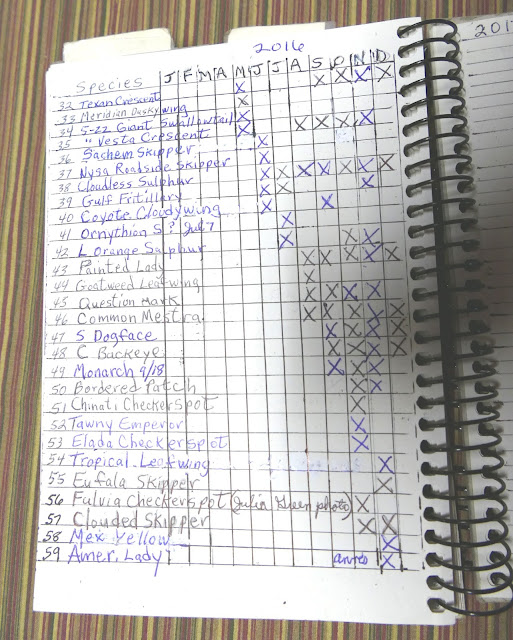 2016
201
Species J F M A M J J A S O N D
32 Texan Crescent X X X X X
33 Meridian Duskywing X
34 5-22 Giant Swallowtail X X X X X
35 " Vesta Crescent X
36 Sachem Skipper X
37 Nysa Roadside Skipper X
38 Cloudless Sulphur X X X X X X X
39 Gulf Fritillery X X X
40 Coyote Cloudywing X X
41 Ornythion S? Jul 7 X
42 L Orange Sulphur X X X
43 Painted Lady X X X X X
44 Goatweed Leafwing X
45 Question Mark X X X X
46 Common Mestra X X X X X
47 S Dogface X X X X
48 C Buckeye X X X X
49 Monarch 9/18 X X X
50 Bordered Patch X X
51 Chinati Checkerspot X
52 Tawny Emperor X
53 Elada Checkerspot X
54 Tropical Leafwing X
55 Eufala Skipper X
56 Fulvia Checkerspot (Julia Green photo) X
57 Clouded Skipper X X
58 Mex Yellow X
59 Amer. Lady X